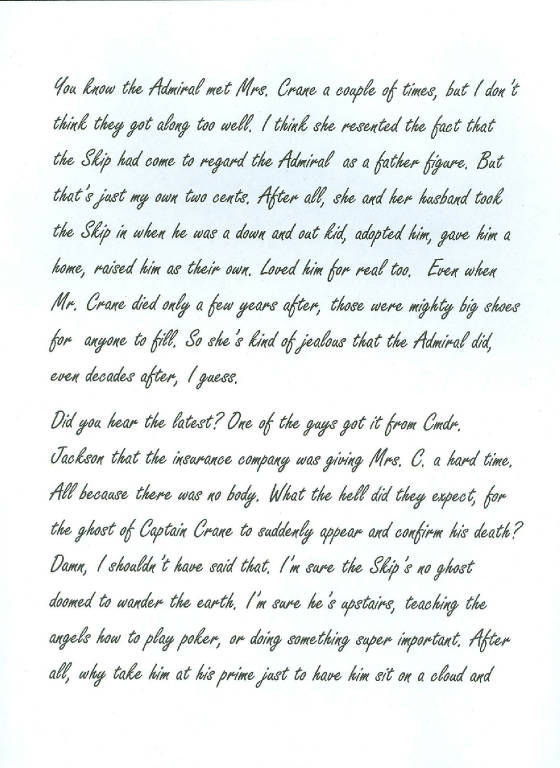 You know the Admiral met Mrs. Crane a couple of times, but I don't
think they got along too well. I think she resented the fact that
the Skip had come to regard the Admiral as a father figure. But
that's just my own two cents. After all, she and her husband took
the Skip in when he was a down and out kid, adopted him, gave him a
home, raised him as their own. Loved him for real too. Even when
Mr. Crane died only a few years after, those were mighty big shoes
for anyone to fill. So she's kind of jealous that the Admiral did,
even decades after, I guess.
Did you hear the latest? One of the guys got it from Cmdr.
Jackson that the insurance company was giving Mrs. C. a hard time.
All because there was no body. What the hell did they expect, for
the ghost of Captain Crane to suddenly appear and confirm his death?
Damn, I shouldn't have said that. I'm sure the Skip's no ghost
doomed to wander the earth. I'm sure he's upstairs, teaching the
angels how to play poker, or doing something super important. After
all, why take him at his prime just to have him sit on a cloud and